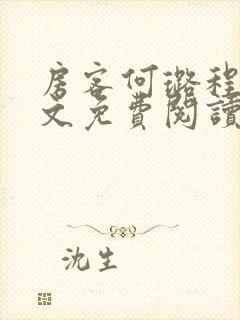 房客何璐程
文免費閱讀
沈生